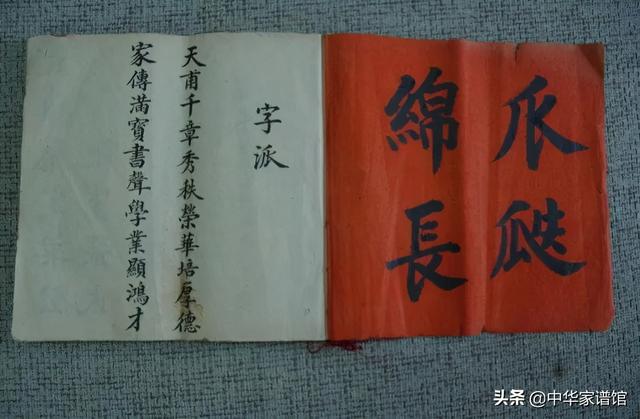 瓜瓞
綿長
字派
天甫千章秀秩榮華培厚德
家傳滿寶書聲學業顯鴻才
头条 @中华家谱馆